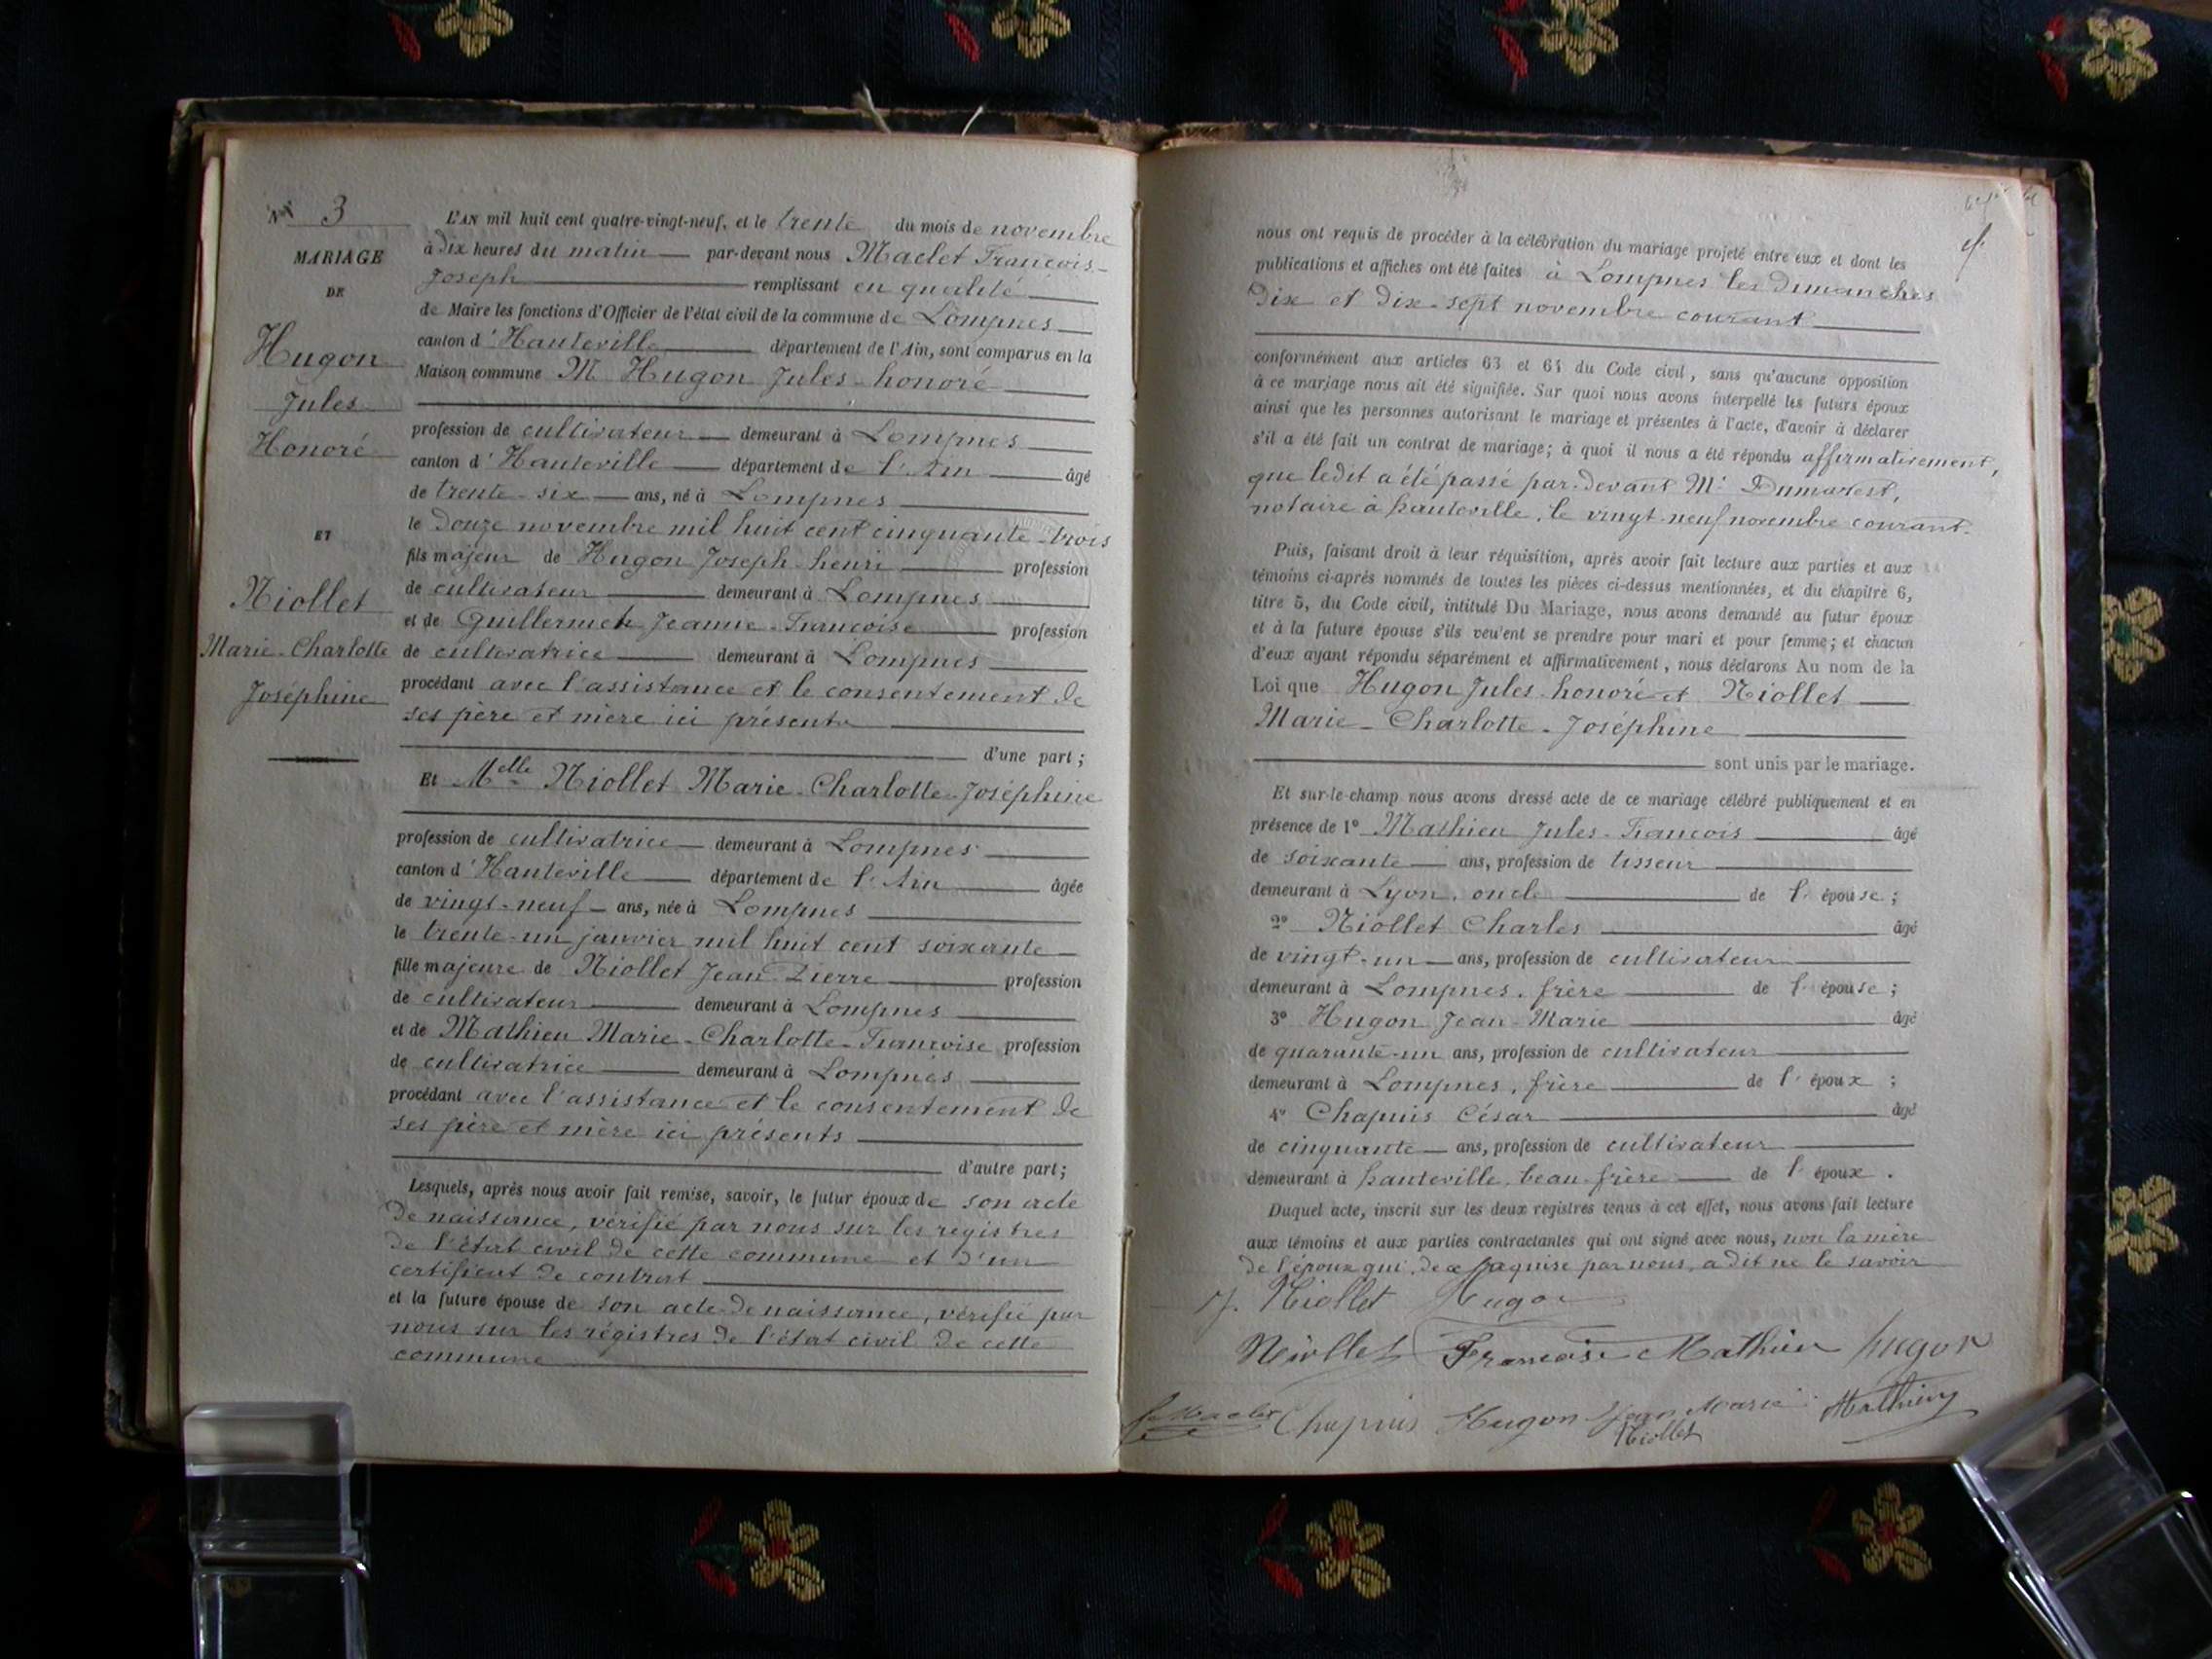 N° 3
MARIAGE
DE
Hugon
Jules
Honoré
ET
Niollet
Marie-Charlotte
Joséphine
L'AN mil huit cent quatre-vingt-neuf, et le trente du mois de novembre
à dix heures du matin par-devant nous Maclet François-
Joseph remplissant en qualité
de Maire les fonctions d'Officier de l'état civil de la commune de Lompnes
canton d'Hauteville département de l'Ain, sont comparus en la
Maison commune M Hugon Jules-honoré
profession de cultivateur demeurant à Lompnes
canton d'Hauteville département de l'Ain âgé
de trente-six ans, né à Lompnes
le douze novembre mil huit cent cinquante-trois
fils majeur de Hugon Joseph-henri profession
de cultivateur demeurant à Lompnes
et de Guillermet Jeanne-Françoise profession
de cultivatrice demeurant à Lompnes
procédant avec l'assistance et le consentement de
ses père et mère ici présents
d'une part ;
Et Melle Niollet Marie-Charlotte-Joséphine
profession de cultivatrice demeurant à Lompnes
canton d'Hauteville département de l'Ain âgée
de vingt-neuf ans, née à Lompnes
le trente-un janvier mil huit cent soixante
fille majeure de Niollet Jean-Pierre profession
de cultivateur demeurant à Lompnes
et de Mathieu Marie-Charlotte-Françoise profession
de cultivatrice demeurant à Lompnes
procédant avec l'assistance et le consentement de
ses père et mère ici présents
d'autre part ;
Lesquels, après nous avoir fait remise, savoir, le futur époux de son acte
de naissance, vérifié par nous sur les registres
de l'état civil de cette commune et d'un
certificat de contrat
et la future épouse de son acte de naissance, vérifié par
nous sur les régistres de l'état civil de cette
commune
nous ont requis de procéder à la célébration du mariage projeté entre eux et dont les
publications et affiches ont été faites à Lompnes les dimanches
dix et dix-sept novembre courant
conformément aux articles 63 et 64 du Code civil, sans qu'aucune opposition
à ce mariage nous ait été signifiée. Sur quoi nous avons interpellé les futurs époux
ainsi que les personnes autorisant le mariage et présentes à l'acte, d'avoir à déclarer
s'il a été fait un contrat de mariage ; à quoi il nous a été répondu affirmativement,
que ledit a été passé par-devant Me Dumarest,
notaire à hauteville, le vingt-neuf novembre courant.
Puis, faisant droit à leur réquisition, après avoir fait lecture aux parties et aux
témoins ci-après nommés de toutes les pièces ci-dessus mentionnées, et du chapitre 6,
titre 5, du Code civil, intitulé Du Mariage, nous avons demandé au futur époux
et à la future épouse s'ils veulent se prendre pour mari et pour femme ; et chacun
d'eux ayant répondu séparément et affirmativement, nous déclarons Au nom de la
Loi que Hugon Jules-honoré et Niollet
Marie-Charlotte-Joséphine
sont unis par le mariage.
Et sur-le-champ nous avons dressé acte de ce mariage célébré publiquement et en
présence de 1° Mathieu Jules-François âgé
de soixante ans, profession de tisseur
demeurant à Lyon, oncle de l'épouse ;
2° Niollet Charles âgé
de vingt-un ans, profession de cultivateur
demeurant à Lompnes, frère de l'épouse ;
3° Hugon Jean-Marie âgé
de quarante-un ans, profession de cultivateur
demeurant à Lompnes, frère de l'époux ;
4° Chapuis César âgé
de cinquante ans, profession de cultivateur
demeurant à hauteville, beau-frère de l'époux.
Duquel acte, inscrit sur les deux registres tenus à cet effet, nous avons fait lecture
aux témoins et aux parties contractantes qui ont signé avec nous, non la mère
de l'époux qui, de ce par nous, a dit ne le savoir
J. Niollet Hugon
Niollet Françoise Mathieu hugon
Maclet Chapuis Hugon Jean Marie Mathieu
Niollet